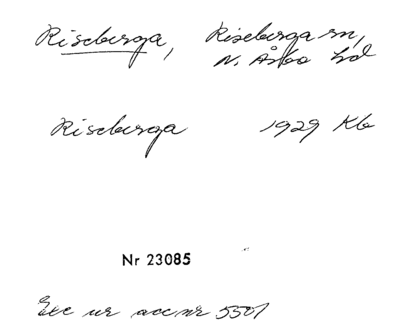 Riseberga, Riseberga sn,
N. Åsbo hd
Riseberga 1929 Kb
Nr 23085
Exc ur acc nr 5501